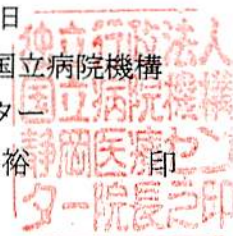 日
国立病院機構
ター
裕 印
独立行政法人
国立病院機構
静岡医療セン
ター院長之印